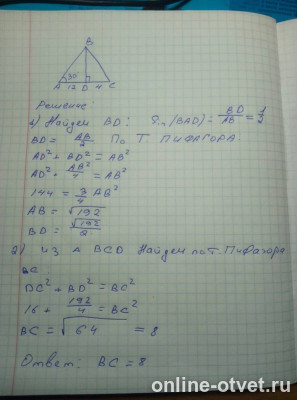 B
30°
A 12 D 4 C
Решение
1) Найдем BD: Sin(BAD) = BD/AB = 1/2
BD = AB/2 По Т ПИФАГОРА
AD² + BD² = AB²
AD² + AB²/4 = AB²
144 = 3/4 AB²
AB = √192
BD = √192/2
2) из △ BCD Найдем по т. Пифагора
BC:
DC² + BD² = BC²
16 + 192/4 = BC²
BC = √64 = 8
Ответ: BC = 8
online-otvet.ru